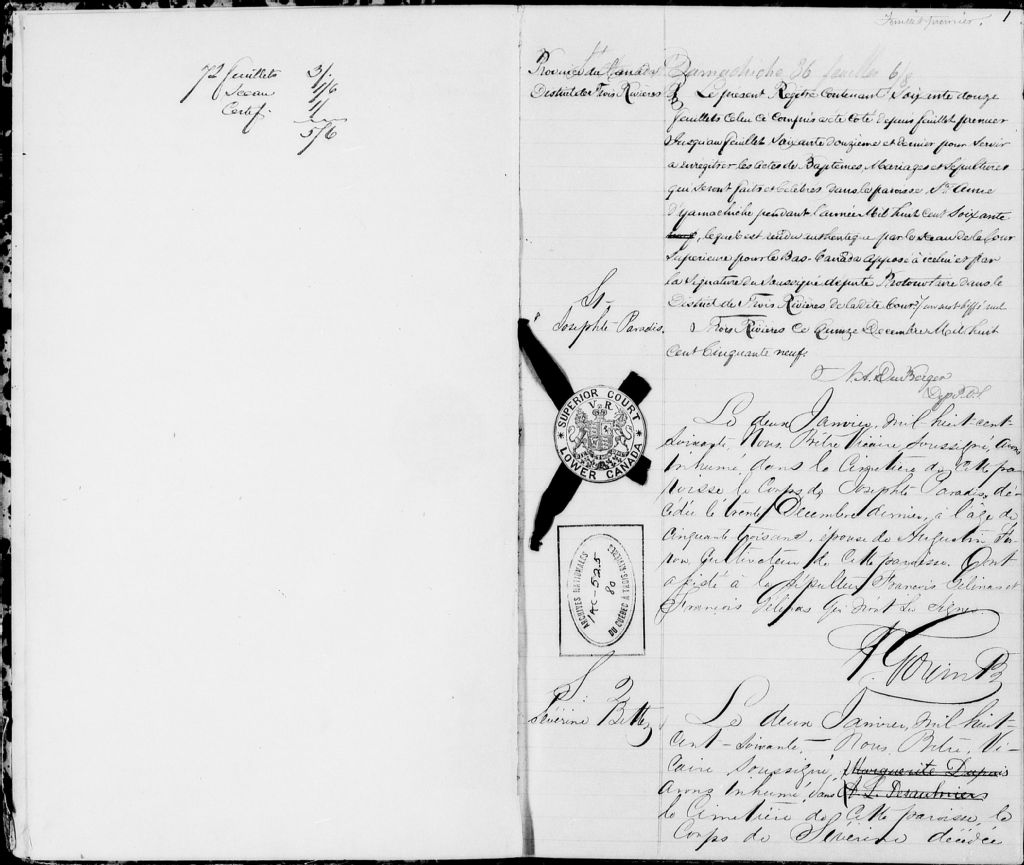 72 feuillets 3/.
Sceau 1/6
Certif. 1/
5/6
Feuillet premier.
1
Province du Canada
District de Trois Rivières
Yamachiche 26
Le présent Registre contenant Soixante douze
feuillets celui ci compris a été coté depuis feuillet premier
jusqu'au feuillet Soixante douzième et dernier pour servir
a enregistrer les actes de Baptêmes, Mariages et Sépultures
qui seront faits et célébrés dans la paroisse Ste Anne
d'Yamachiche pendant l'année Mil huit cent Soixante
, lequel est rendu authentique par le sceau de la Cour
Supérieure pour le Bas-Canada apposé à icelui et par
la Signature du Soussigné député Protonotaire dans le
District de Trois Rivières de la dite Cour, un mot biffé nul
Trois Rivières Ce Quinze Decembre Mil huit
Cent Cinquante neuf.
S1.
Josephte Paradis.
Le deux Janvier, mil huit-cent-
soixante, Nous, Prêtre Vicaire, soussigné, avons
inhumé, dans le Cimetière de cette pa-
roisse le Corps de Josephte Paradis, dé-
cédée le trente Décembre dernier, à l'âge de
cinquante trois ans, épouse de Augustin Fe-
ron, Cultivateur de cette paroisse. Ont
assisté à la sépulture François Gélinas et
François Gélinas qui n'ont su signer.
SUPERIOR COURT
V R
LOWER CANADA
ARCHIVES NATIONALES
DU QUEBEC A TROIS-RIVIERES
80
S. 2
Sévérine
Le deux Janvier, mil huit-
cent-soixante, Nous, Prêtre, Vi-
caire soussigné, Marguerite Dupuis
avons inhumé, dans L. Desaulniers
le Cimetière de cette paroisse, le
Corps de Sévérine décédée